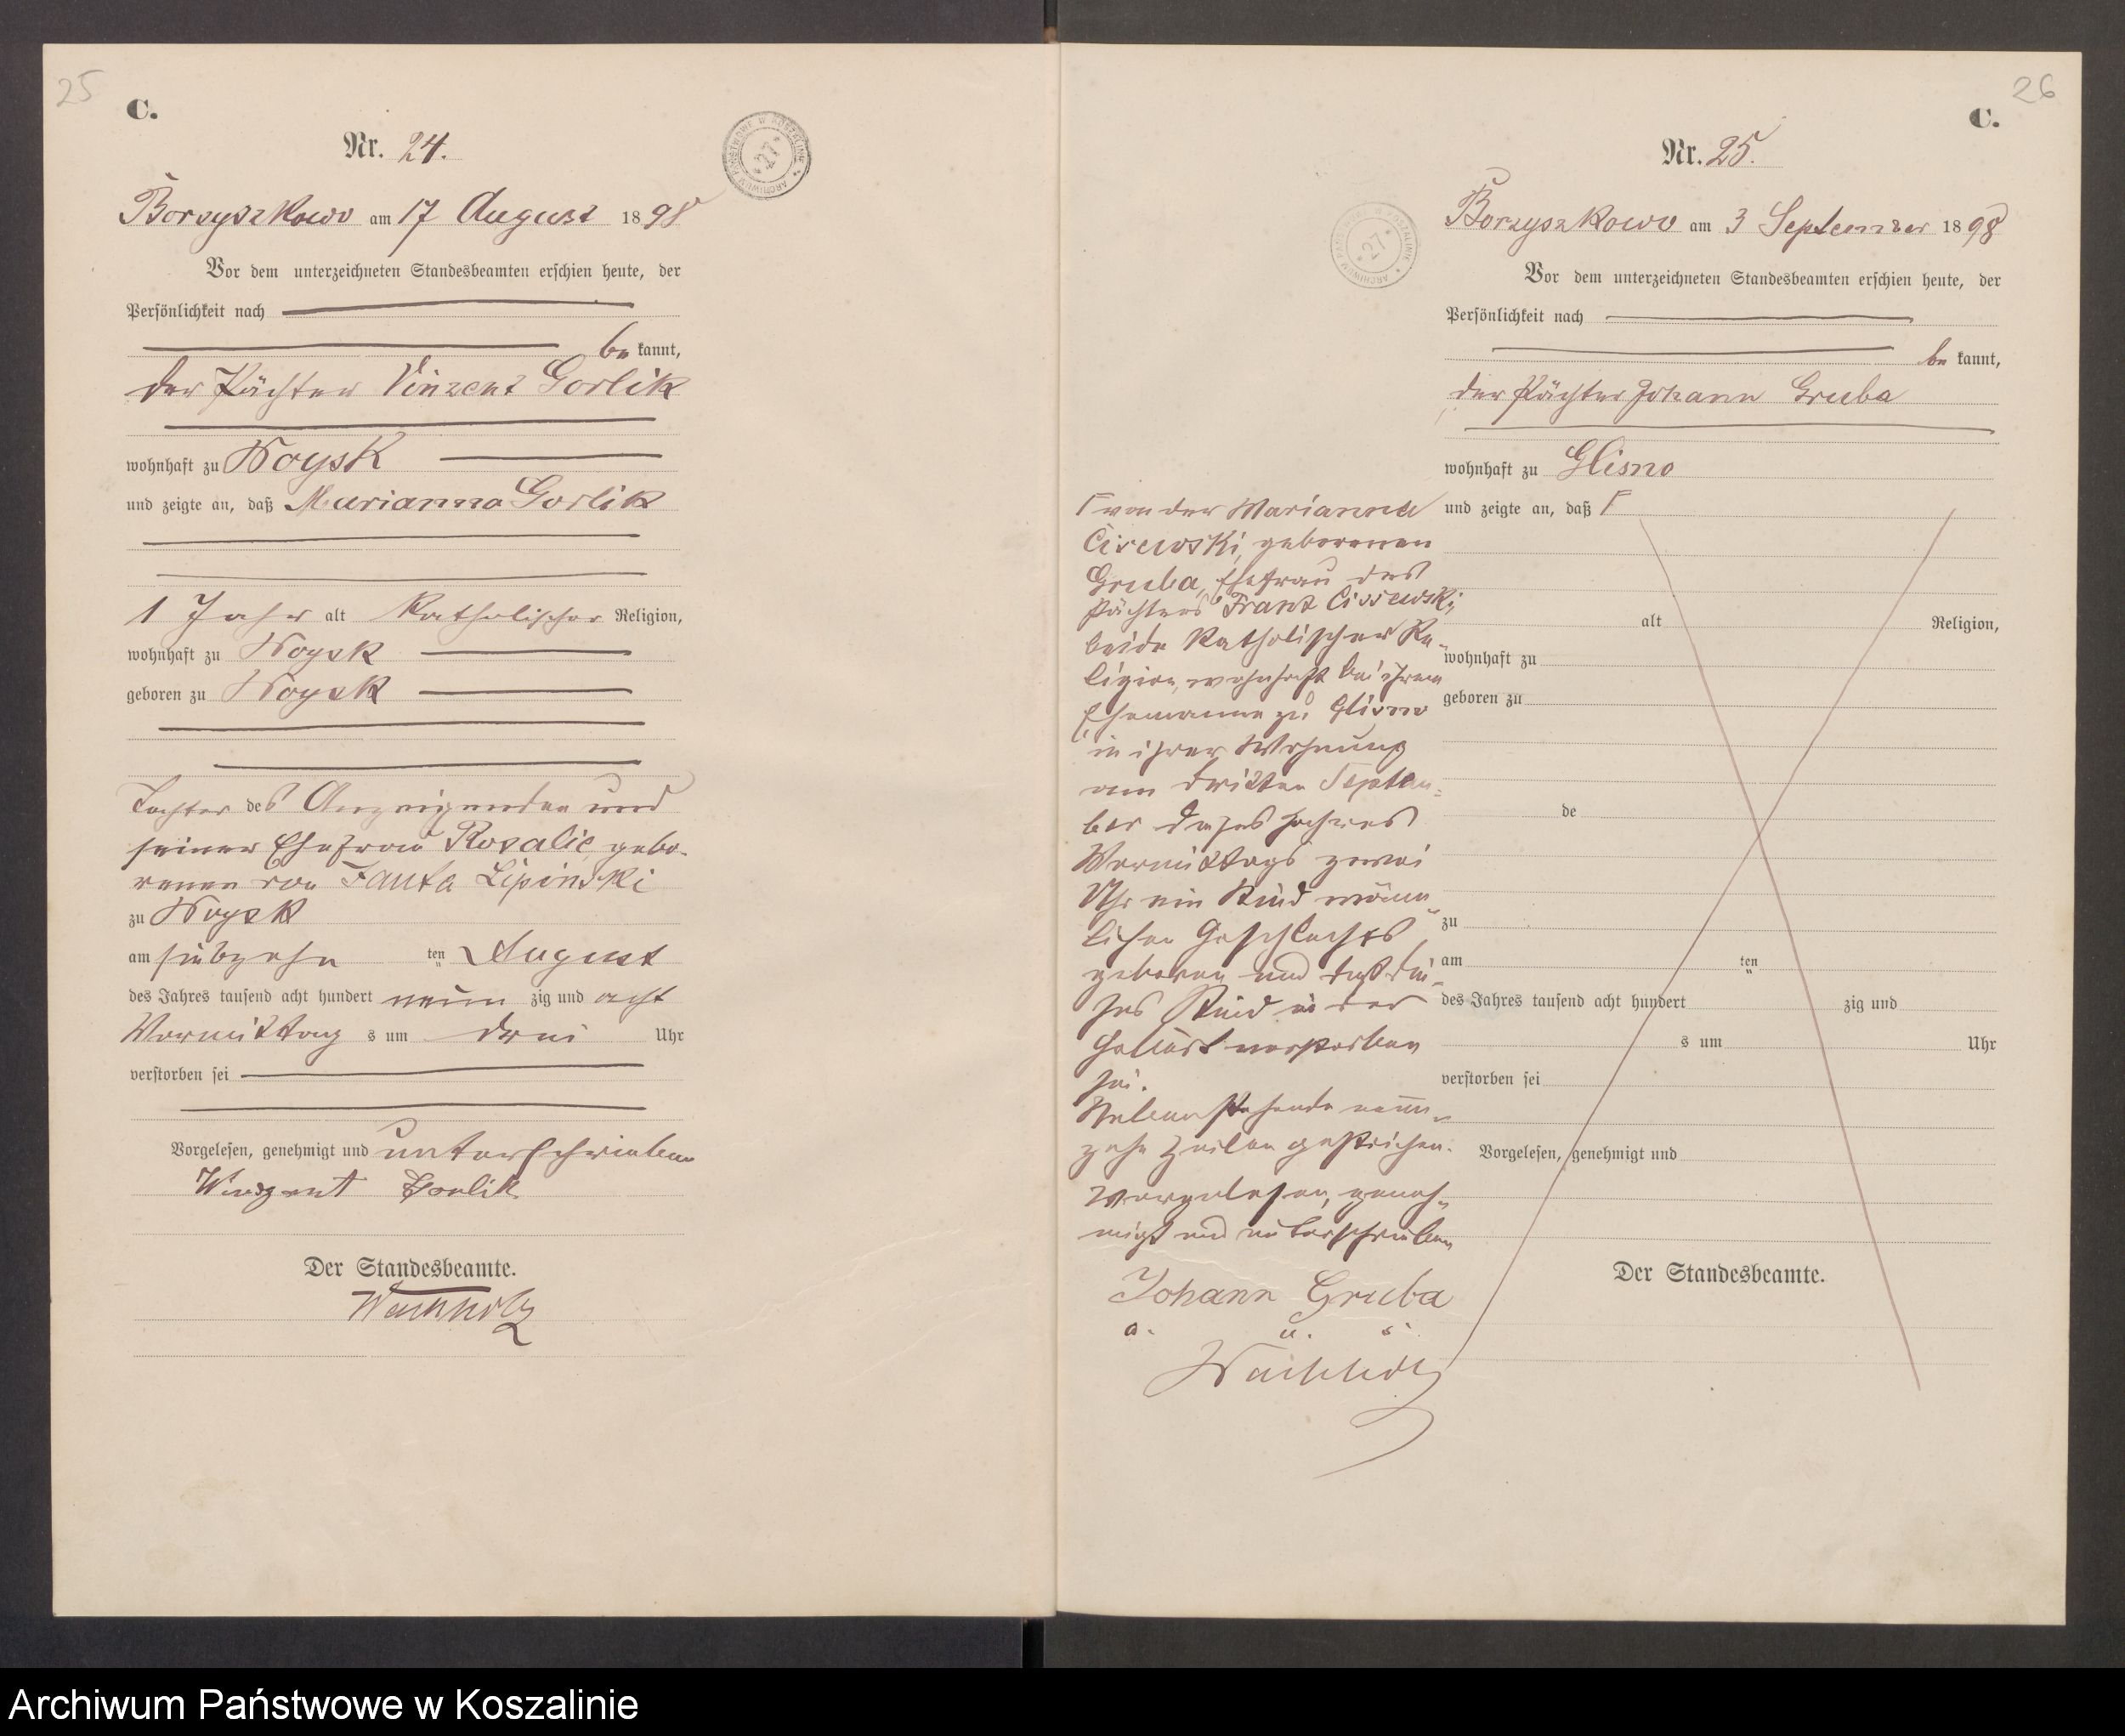 25
C.
Nr. 24.
ARCHIWUM PAŃSTWOWE W KOSZALINIE
27
Borzyszkowo am 17 August 1898
Vor dem unterzeichneten Standesbeamten erschien heute, der
Persönlichkeit nach
be kannt,
der Pächter Vinzent Gorlik
wohnhaft zu Woysk
und zeigte an, daß Marianna Gorlik
1 Jahr alt katholischer Religion,
wohnhaft zu Woysk
geboren zu Woysk
Tochter des Anzeigenden und
seiner Ehefrau Rosalie, gebo-
renen von Janta Lipinski
zu Woysk
am siebzehn ten August
des Jahres tausend acht hundert neun zig und acht
Vormittag s um drei Uhr
verstorben sei
Vorgelesen, genehmigt und unterschrieben
Winzent Gorlik
Der Standesbeamte.
Wachholz
26
C.
Nr. 25.
ARCHIWUM PAŃSTWOWE W KOSZALINIE
27
Borzyszkowo am 3 September 1898
Vor dem unterzeichneten Standesbeamten erschien heute, der
Persönlichkeit nach
be kannt,
der Pächter Johann Gruba
wohnhaft zu Glisno
und zeigte an, daß Γ
Γ von der Marianna
Cisewski, geborenen
Gruba, Ehefrau des
Pächters Franz Cissewski,
beide katholischer Re-
ligion, wohnhaft bei ihrem
Ehemanne zu Glisno
in ihrer Wohnung
am dritten Septem-
ber dieses Jahres
Vormittags zwei
Uhr ein Kind männ-
lichen Geschlechts
geboren und daß die-
ses Kind in der
Geburt verstorben
sei.
Nebenstehende neun-
zehn Zeilen gestrichen.
Vorgelesen, geneh-
migt und unterschrieben
Johann Gruba
a. u. s.
Wachholz
alt Religion,
wohnhaft zu
geboren zu
de
zu
am ten
des Jahres tausend acht hundert zig und
s um Uhr
verstorben sei
Vorgelesen, genehmigt und
Der Standesbeamte.
Archiwum Państwowe w Koszalinie